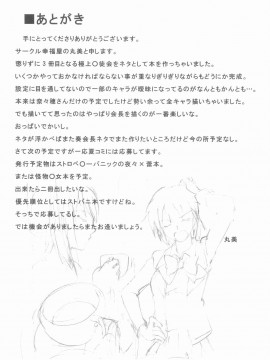 ■あとがき
手にとってくださりありがとうございます。
サークル幸福屋の丸美と申します。
懲りずに3冊目となる極上〇徒会をネタとして本を作っちゃいました。
いくつかやっておかなければならない事が重なりぎりぎりながらもどうにか完成。
設定に目を通してないので一部のキャラが曖昧になってるのがなんともかんとも…。
本来は奈々穂さんだけの予定でしたけど勢い余って金キャラ描いちゃいました。
でも描いてて思ったのはやっぱり会長を描くのが一番楽しいな。
おっぱいでかいし。
ネタが浮かべばまた奏会長ネタでまた作りたいところだけど今の所予定なし。
さて次の予定ですが一応夏コミには応募してます。
発行予定物はストロベ〇ーパニックの夜々×蕾本。
または怪物〇女本を予定。
出来たら二冊出したいな。
優先順位としてはストパニ本ですけどねー。
そっちで応募してるし。
では機会がありましたらまたお逢いましょう。
丸美